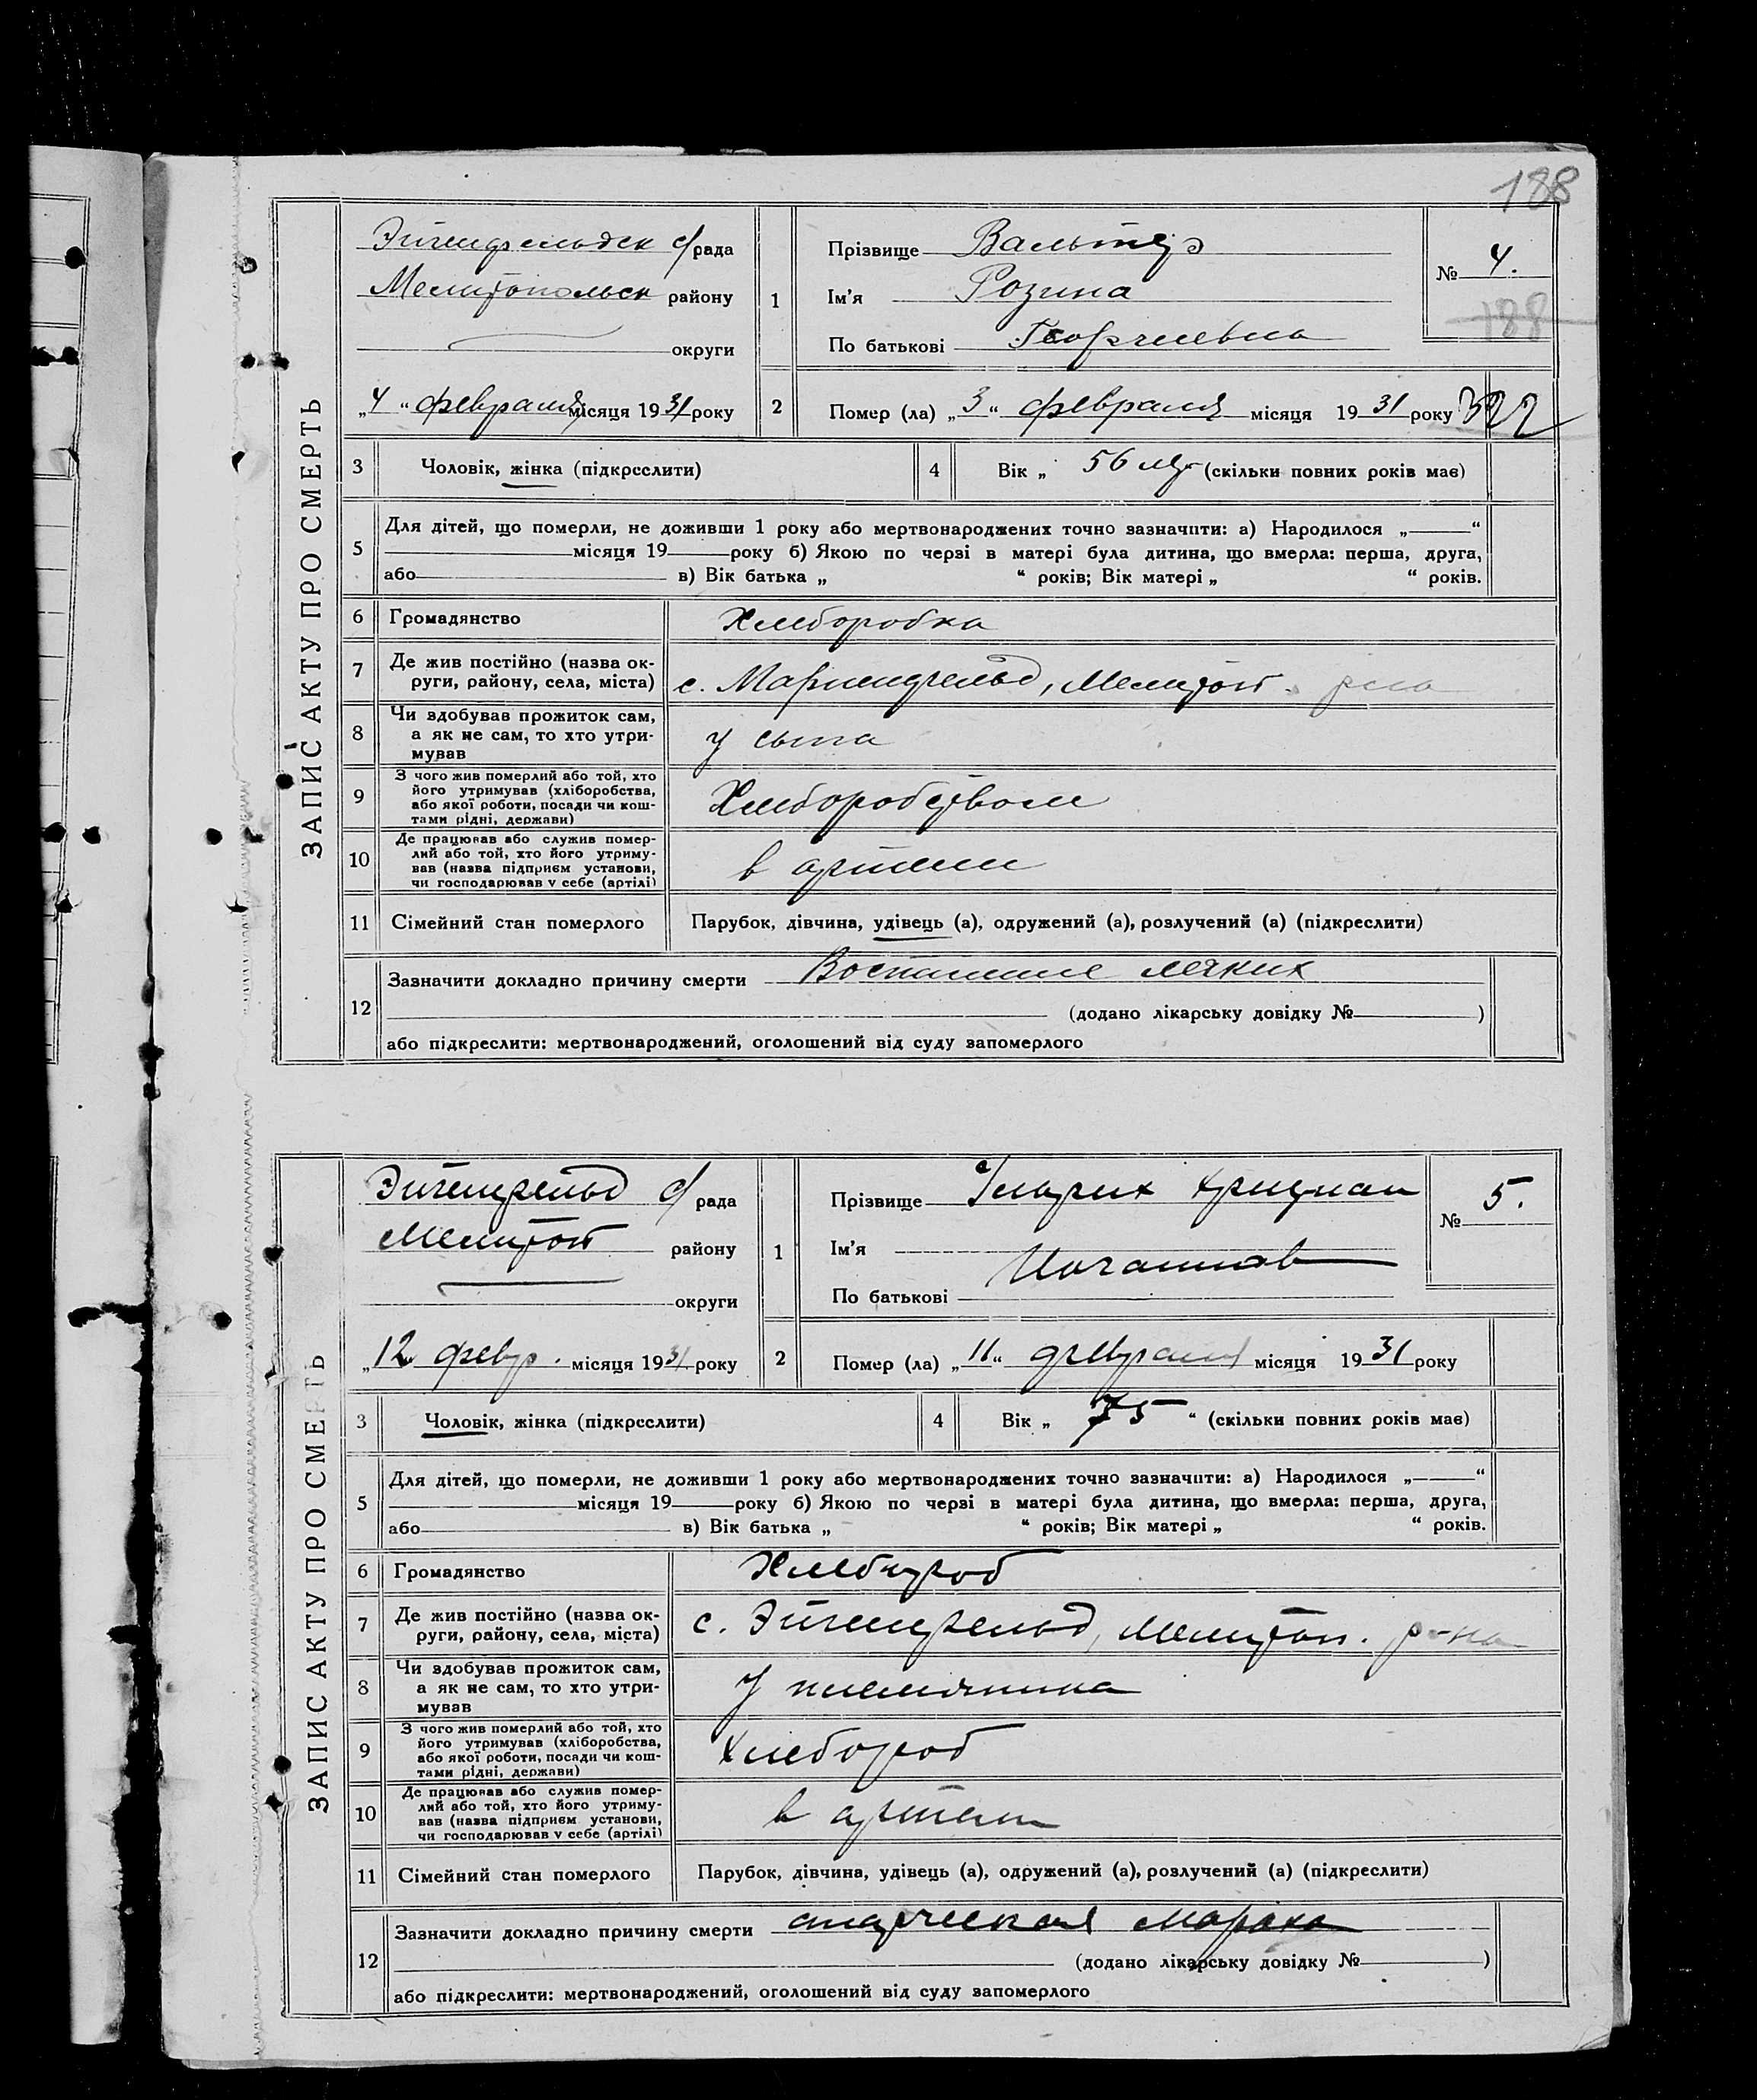 188
ЗАПИС АКТУ ПРО СМЕРТЬ
Эйгенфельдск с/рада
Мелитопольск району
округи
„4“ февраля місяця 1931 року
1
Прізвище Вальтер
Ім'я Розина
По батькові Георгиевна
№ 4.
188
2
Помер (ла) „3“ февраля місяця 1931 року
322
3
Чоловік, жінка (підкреслити)
4
Вік „ 56 (скільки повних років має)
5
Для дітей, що померли, не доживши 1 року або мертвонароджених точно зазначити: а) Народилося „ “
місяця 19 року б) Якою по черзі в матері була дитина, що вмерла: перша, друга,
або в) Вік батька „ “ років; Вік матері „ “ років.
6
Громадянство
Хлеборобка
7
Де жив постійно (назва ок-
руги, району, села, міста)
с. Мариенфельд, Мелитоп. р-на
8
Чи здобував прожиток сам,
а як не сам, то хто утри-
мував
у сына
9
З чого жив померлий або той, хто
його утримував (хліборобства,
або якої роботи, посади чи кош-
тами рідні, держави)
Хлеборобством
10
Де працював або служив помер-
лий або той, хто його утриму-
вав (назва підприєм установи,
чи господарював у себе (артілі)
в артели
11
Сімейний стан померлого
Парубок, дівчина, удівець (а), одружений (а), розлучений (а) (підкреслити)
12
Зазначити докладно причину смерти Воспаление легких
(додано лікарську довідку № )
або підкреслити: мертвонароджений, оголошений від суду запомерлого
ЗАПИС АКТУ ПРО СМЕРТЬ
Эйгенфельд с/рада
Мелитоп району
округи
„12 февр. місяця 1931 року
1
Прізвище
Ім'я
По батькові
№ 5.
2
Помер (ла) „11“ февраля місяця 1931 року
3
Чоловік, жінка (підкреслити)
4
Вік „ 75 “ (скільки повних років має)
5
Для дітей, що померли, не доживши 1 року або мертвонароджених точно зазначити: а) Народилося „ “
місяця 19 року б) Якою по черзі в матері була дитина, що вмерла: перша, друга,
або в) Вік батька „ “ років; Вік матері „ “ років.
6
Громадянство
Хлебороб
7
Де жив постійно (назва ок-
руги, району, села, міста)
с. Эйгенфельд, Мелитоп. р-на
8
Чи здобував прожиток сам,
а як не сам, то хто утри-
мував
у племянника
9
З чого жив померлий або той, хто
його утримував (хліборобства,
або якої роботи, посади чи кош-
тами рідні, держави)
Хлебороб
10
Де працював або служив помер-
лий або той, хто його утриму-
вав (назва підприєм установи,
чи господарював у себе (артілі)
в артели
11
Сімейний стан померлого
Парубок, дівчина, удівець (а), одружений (а), розлучений (а) (підкреслити)
12
Зазначити докладно причину смерти старческая
(додано лікарську довідку № )
або підкреслити: мертвонароджений, оголошений від суду запомерлого